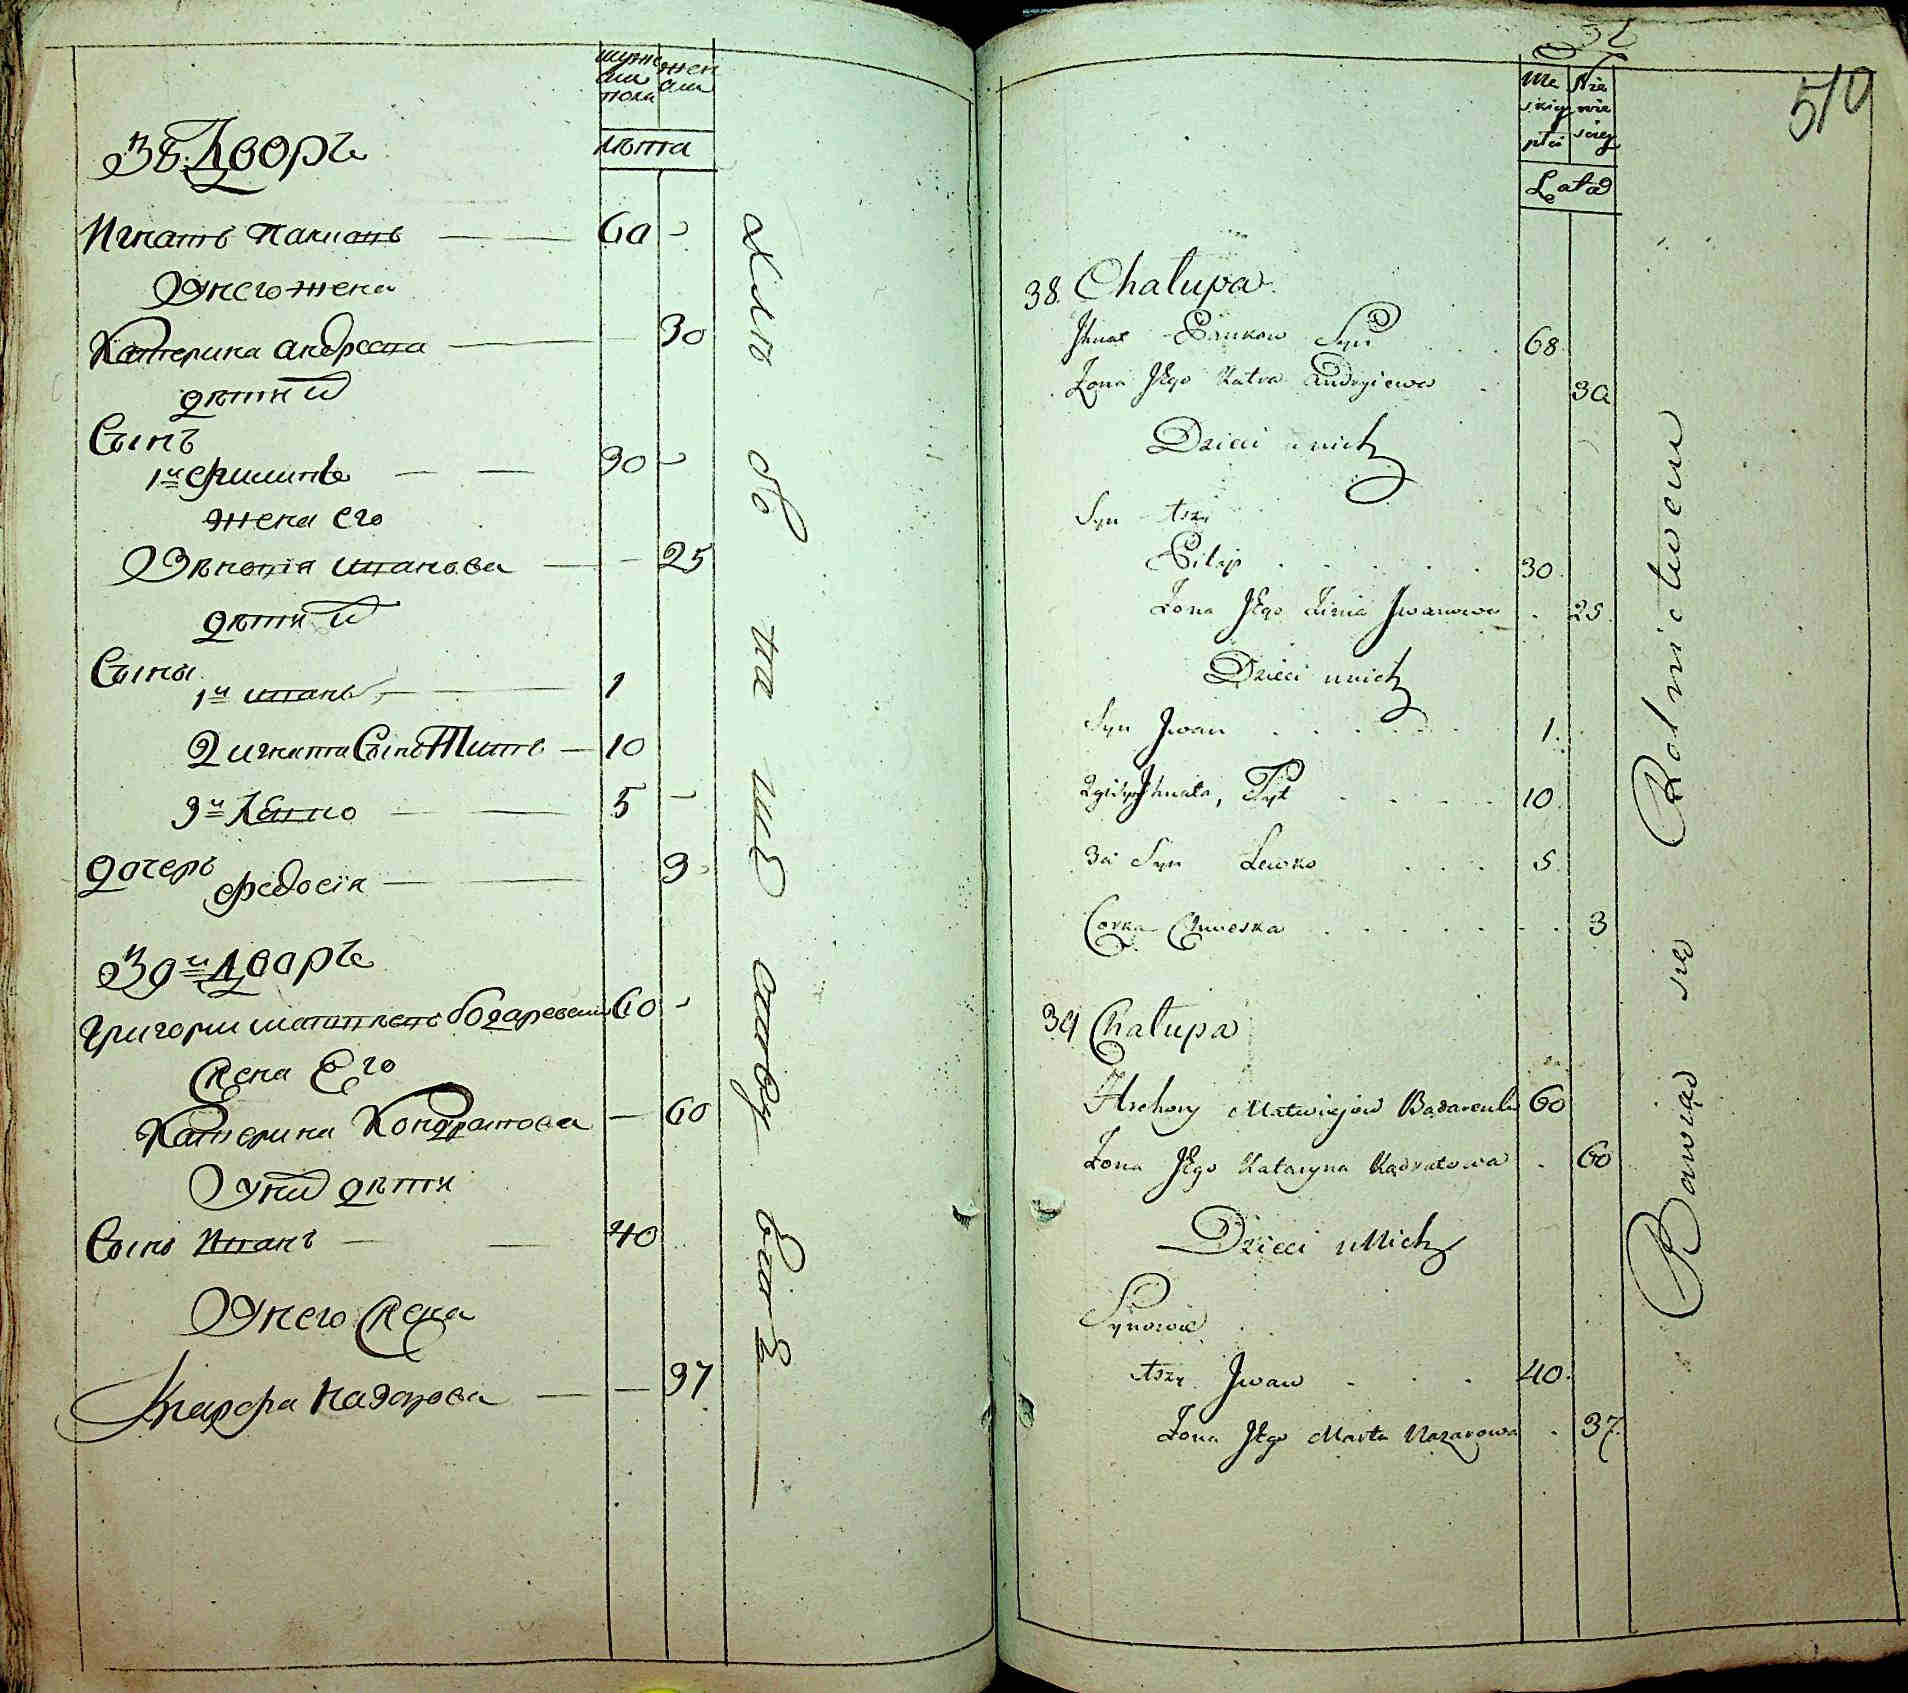 мужеска пола
женска
лѣта
38. Дворъ
Игнатъ 60 -
Унего жена
Катерина Андреева 30
дѣти и
Сынъ
1й Филипъ 30 -
жена его
Иванова - 25
дѣти и
Сыны
1й Иванъ 1
2 Игната Сынъ Титъ 10
3й Левко 5 -
дочерь
Федосія 3
39й Дворъ
Григории Бодаревскии 60 -
Жена Его
Катерина Кондратова - 60
Уних дѣти
Сынъ Иванъ 40
Унего Жена
Марфа Назарова - 37
510
Męskiey płci
Niewieściey
Lata
38. Chałupa
Ihnat Syn 68
Żona Jego Katra Andryiewa 30
Dzieci unich
Syn 1szy
Filip 30
Żona Jego Zinia Iwanowa 25
Dzieci unich
Syn Iwan 1
2gi Syn Ihnata, Tyt 10
3ci Syn Lewko 5
Corka 3
39 Chałupa
Hrehory Matwiejow 60
Żona Jego Kataryna Kądratowa 60
Dzieci uNich
Synowie
1szy Iwan 40
Żona Jego Marta Nazarowa 37
Bawiąc się Rolnictwem